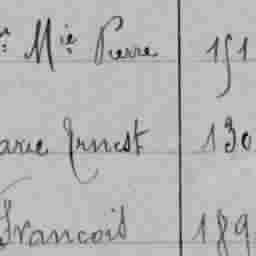 r Mie Pierre 151
arie Ernest 130
Francois 189